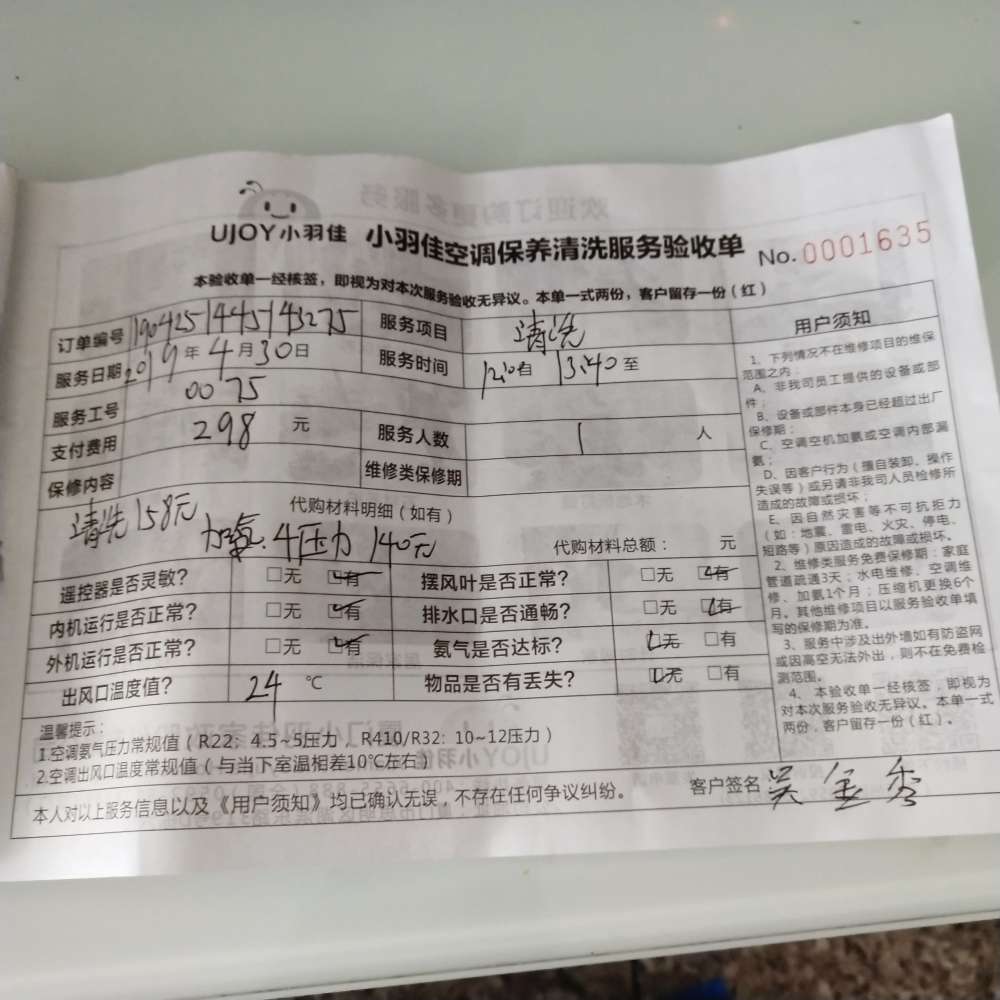 UJOY小羽佳 小羽佳空调保养清洗服务验收单 No.0001635
本验收单一经核签，即视为对本次服务验收无异议。本单一式两份，客户留存一份（红）
订单编号 1904251445143275 服务项目 清洗
服务日期 2019年4月30日 服务时间 13:40至
服务工号 0075
支付费用 298 元 服务人数 1 人
保修内容 维修类保修期
代购材料明细（如有）
清洗158元
加氨.4压力 140元
代购材料总额： 元
遥控器是否灵敏？ □无 □有 摆风叶是否正常？ □无 □有
内机运行是否正常？ □无 □有 排水口是否通畅？ □无 □有
外机运行是否正常？ □无 □有 氨气是否达标？ □无 □有
出风口温度值？ 24 ℃ 物品是否有丢失？ □无 □有
温馨提示：
1.空调氨气压力常规值（R22：4.5~5压力，R410/R32：10~12压力）
2.空调出风口温度常规值（与当下室温相差10℃左右）
本人对以上服务信息以及《用户须知》均已确认无误，不存在任何争议纠纷。 客户签名 吴
用户须知
1、下列情况不在维修项目的维保
范围之内：
A、非我司员工提供的设备或部
件；
B、设备或部件本身已经超过出厂
保修期；
C、空调空机加氨或空调内部漏
氨；
D、因客户行为（擅自装卸、操作
失误等）或另请非我司人员检修所
造成的故障或损坏；
E、因自然灾害等不可抗拒力
（如：地震、雷电、火灾、停电、
短路等）原因造成的故障或损坏。
2、维修类服务免费保修期：家庭
管道疏通3天；水电维修、空调维
修、加氨1个月；压缩机更换6个
月。其他维修项目以服务验收单填
写的保修期为准。
3、服务中涉及出外墙如有防盗网
或因高空无法外出，则不在免费检
测范围。
4、本验收单一经核签，即视为
对本次服务验收无异议。本单一式
两份，客户留存一份（红）。